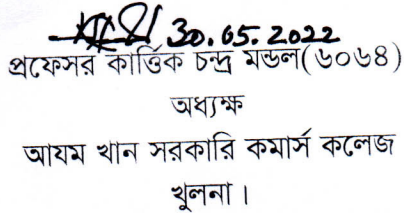 30.05.2022
প্রফেসর কার্ত্তিক চন্দ্র মন্ডল(৬০৬৪)
অধ্যক্ষ
আযম খান সরকারি কমার্স কলেজ
খুলনা।